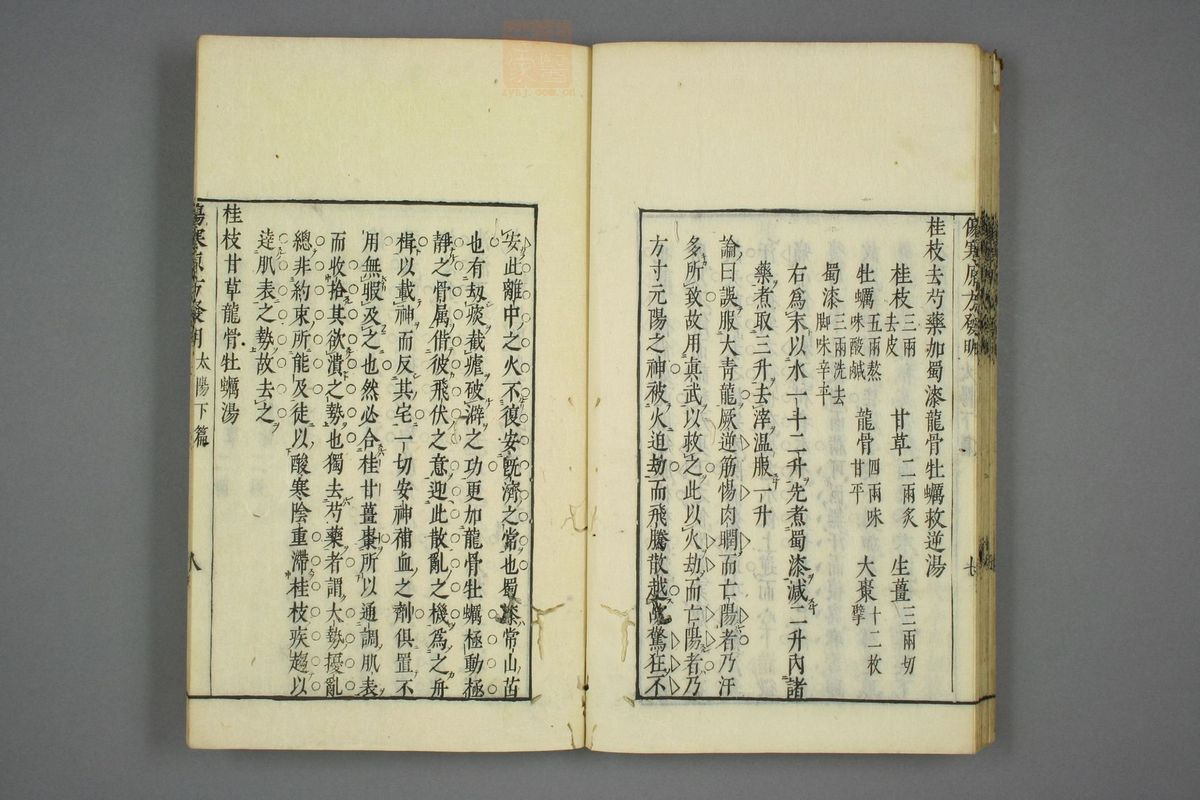 傷寒原方發明 太陽下篇 七
桂枝去芍藥加蜀漆龍骨牡蠣救逆湯
桂枝三兩去皮 甘草二兩炙 生薑三兩切
牡蠣五兩熬味酸鹹 龍骨四兩味甘平 大棗十二枚擘
蜀漆三兩洗去脚味辛平
右爲末以水一斗二升先煮蜀漆減二升內諸
藥煮取三升去滓溫服一升
論曰誤服大青龍厥逆筋惕肉瞤而亡陽者乃汗
多所致故用真武以救之此以火劫而亡陽者乃
方寸元陽之神被火迫劫而飛騰散越驚狂不
安此離中之火不復安旣濟之常也蜀漆常山苗
也有刼痰截瘧破澼之功更加龍骨牡蠣極動極
靜之骨属偕彼飛伏之意迎此散亂之機爲之舟
楫以載神而反其宅一切安神補血之劑俱置不
用無暇及之也然必合桂甘薑棗所以通調肌表
而收拾其欲潰之勢也獨去芍藥者謂大勢擾亂
總非約束所能及徒以酸寒陰重滯桂枝疾趨以
逵肌表之勢故去之
桂枝甘草龍骨牡蠣湯
傷寒原方發明 太陽下篇 八
zynj.com.cn